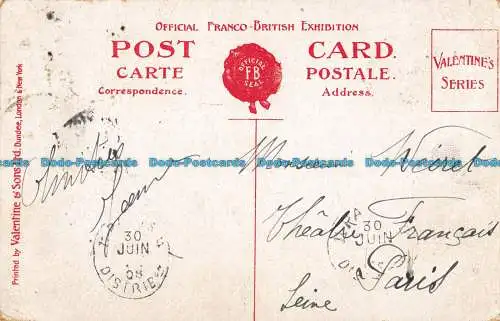 OFFICIAL FRANCO-BRITISH EXHIBITION
POST CARD.
CARTE POSTALE.
Correspondence. Address.
OFFICIAL
FB
SEAL
VALENTINE'S
SERIES
Printed by Valentine & Sons Ltd. Dundee, London & New York
Dodo-Postcards Dodo-Postcards Dodo-Postcards Dodo-Postcards
Monsieur
Théâtre Français
Paris
Seine
30
JUIN
08
DISTRIB
30
JUIN